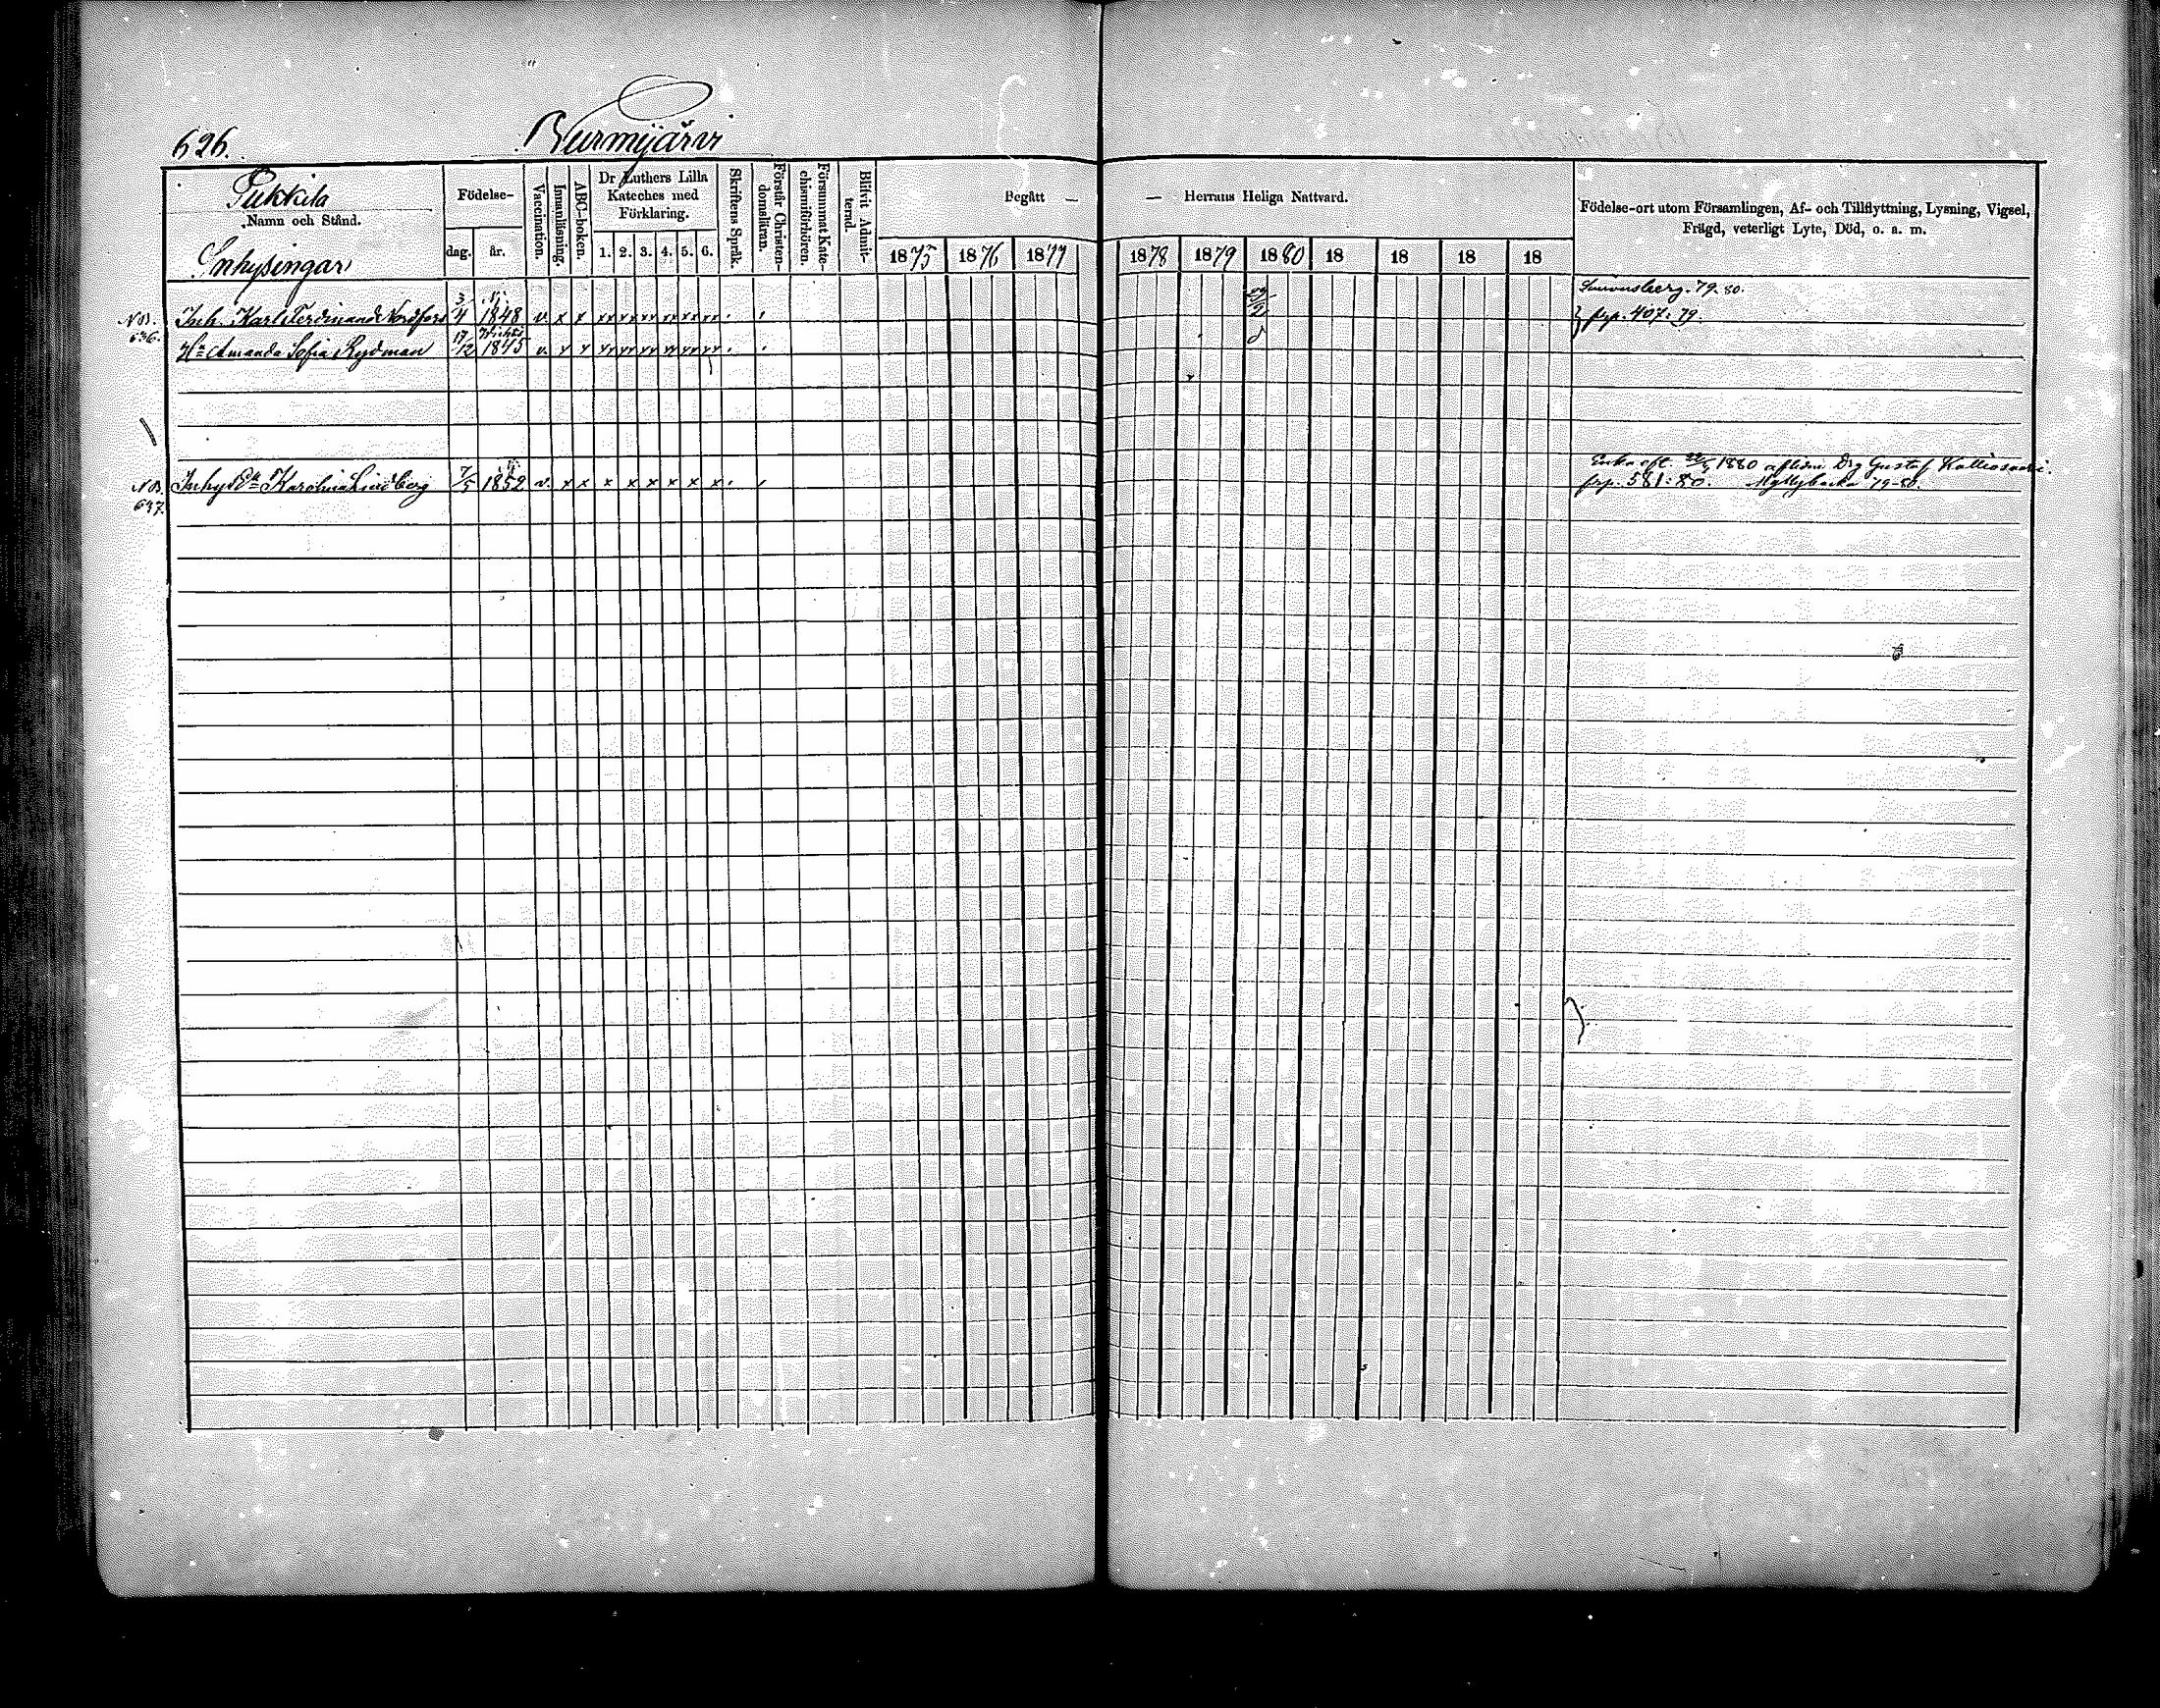 626.
Nurmijärvi
Pukkila
Namn och Stånd.
Inhysingar
Födelse-
dag. år.
Vaccination.
Innanläsning.
ABC-boken.
Dr Luthers Lilla
Kateches med
Förklaring.
1. 2. 3. 4. 5. 6.
Skriftens Språk.
Förstår Christen-
domsläran.
Försummat Kate-
chismiförhören.
Blifvit Admit-
terad.
Begått — — Herrans Heliga Nattvard.
1875 1876 1877 1878 1879 1880 18 18 18 18
Födelse-ort utom Församlingen, Af- och Tillflyttning, Lysning, Vigsel,
Frägd, veterligt Lyte, Död, o. a. m.
79-80.
NB. 636. Inh. Karl Ferdinand Nordfors 3/4 1848 v. x x xx xx xx xx xx xx frp. 407: 79.
Hu Amanda Sofia Rydman 17/12 Wichtis 1845 v. x x xx xx xx xx xx xx
Enka eft. 1880 aflidne Drg Gustaf
NB. 637. Inhys Ek Karolina Lindberg 7/5 1852 v. x x x x x x x x frp. 581: 80. Myllybacka 79-80.